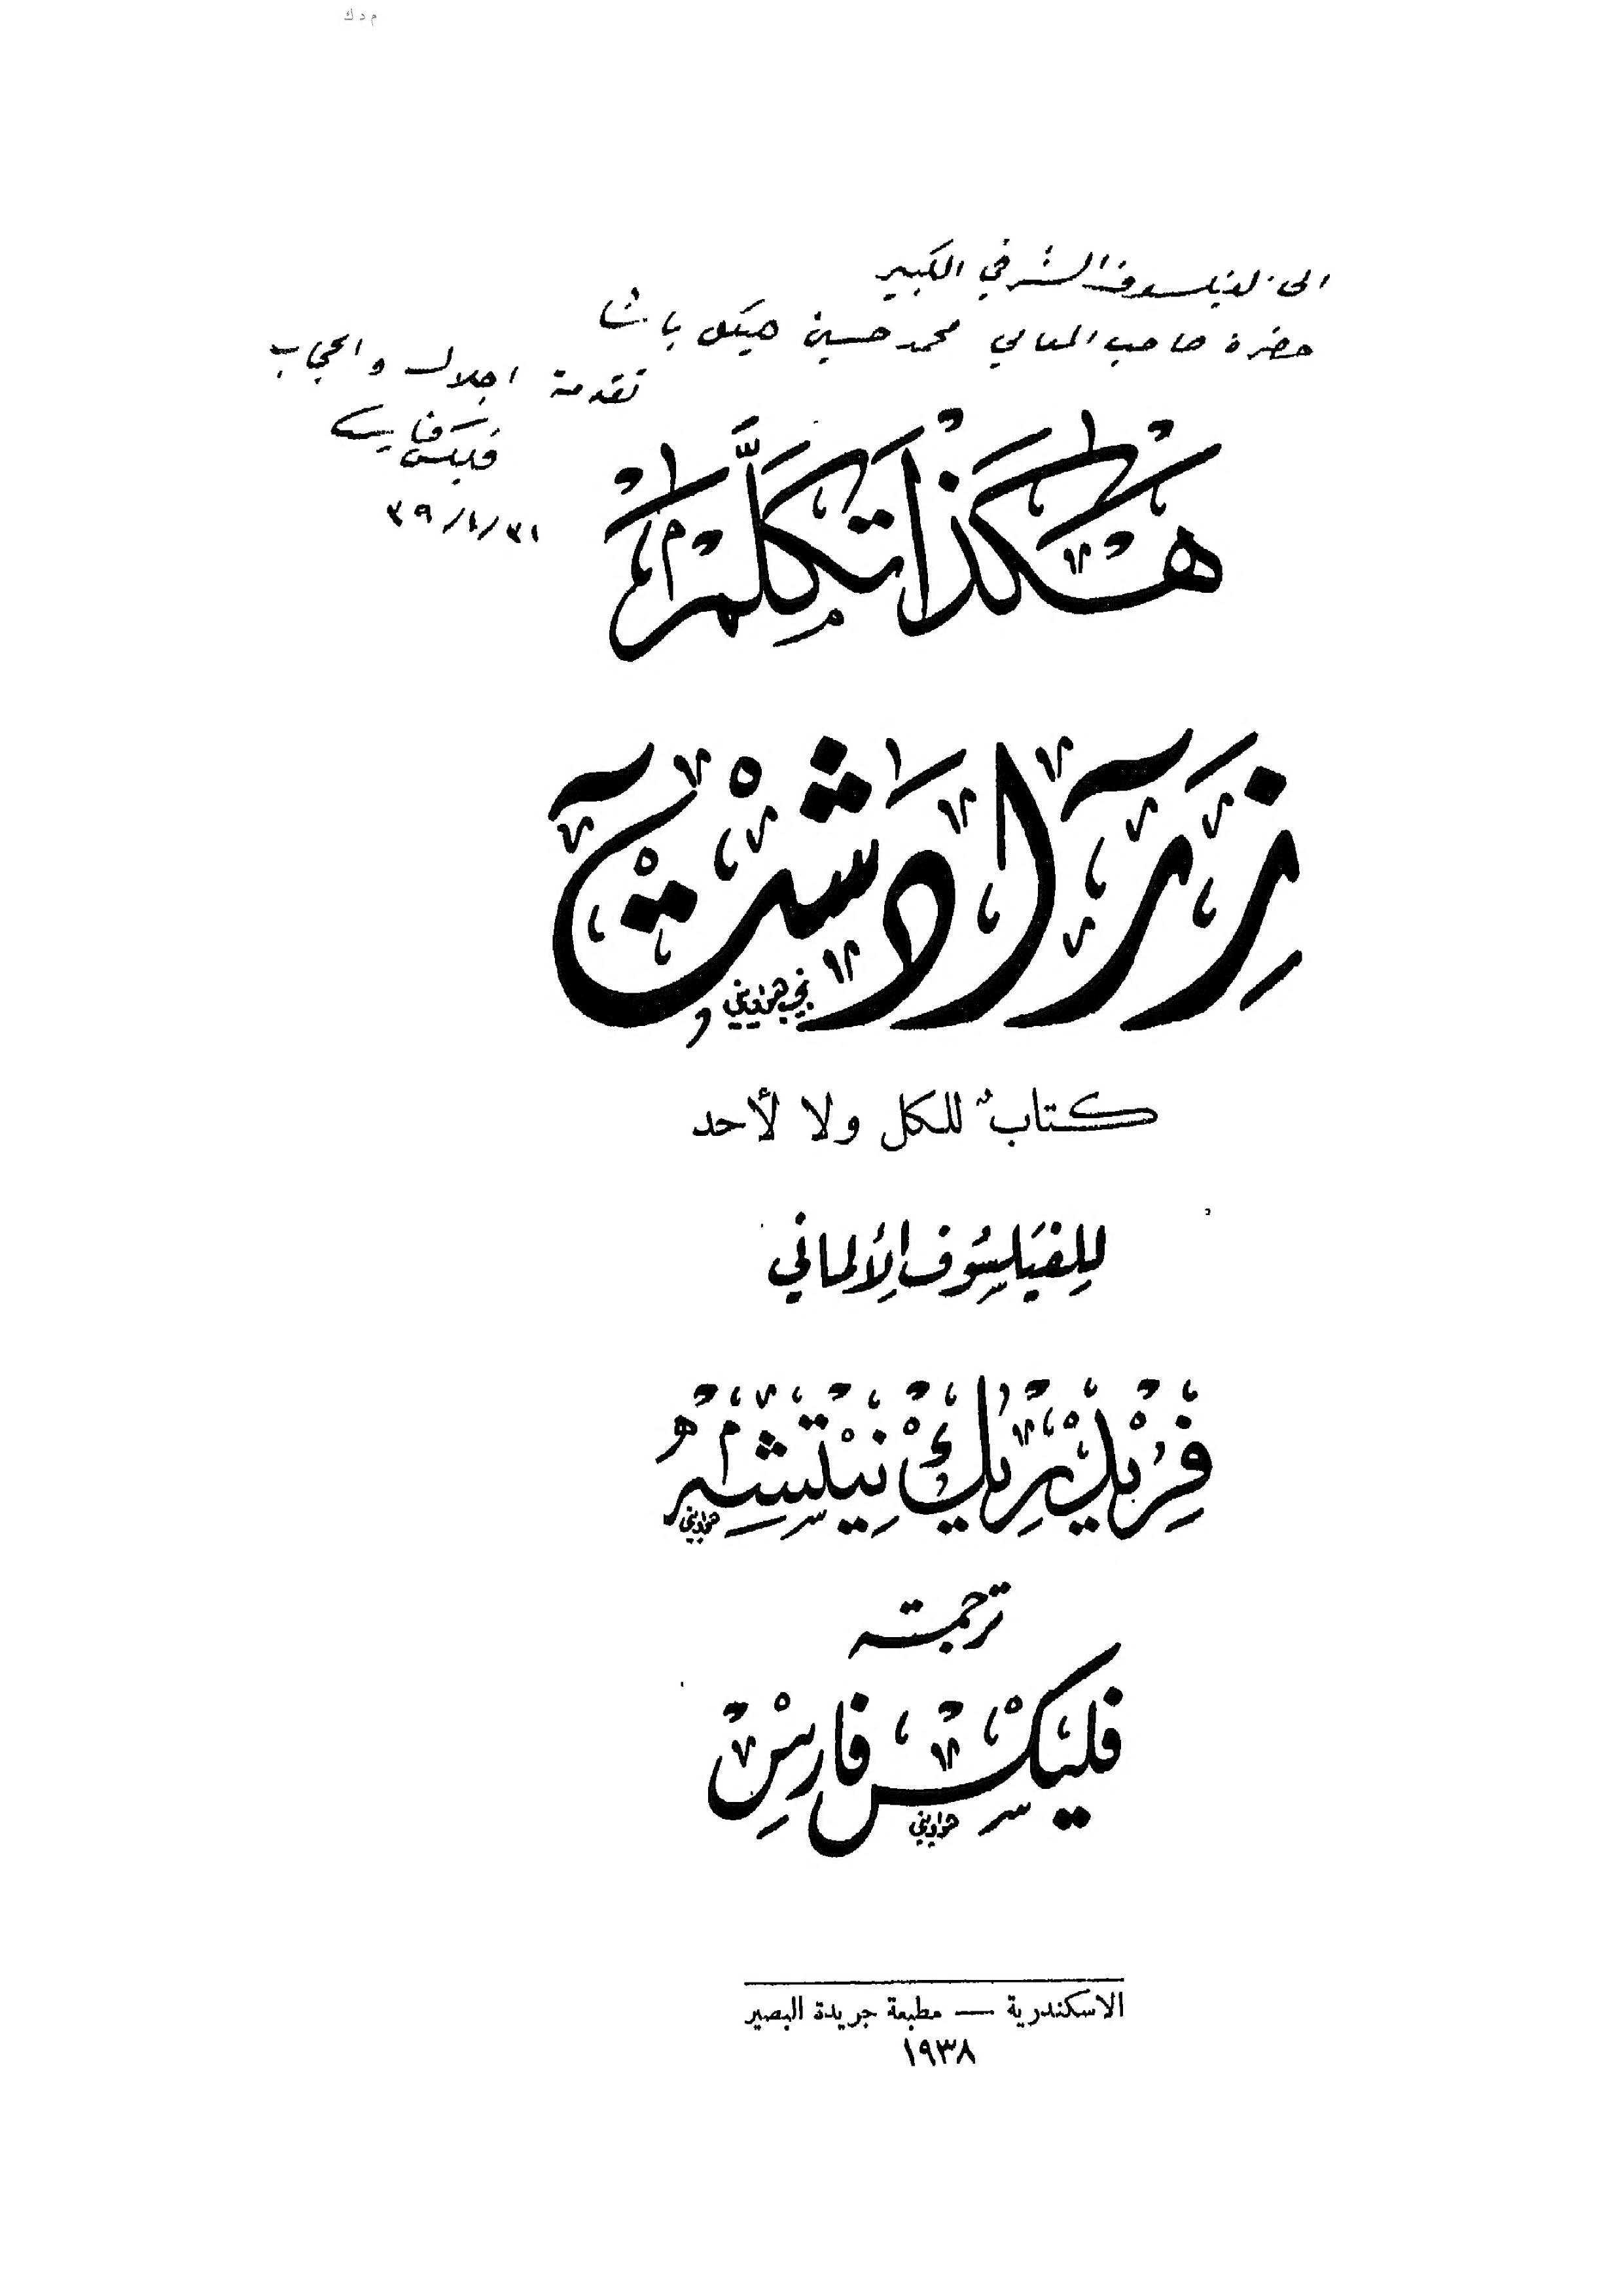 م د ك
الى الفيلسوف الشرقي الكبير
حضرة صاحب المعالي محمد حسين هيكل باشا
تقدمة اجلال واعجاب
فليكس فارس
٣١/١/٣٩
هٰكَذَا تَكَلَّمَ
زَرَادَشْت
نجيب هواويني
كتابٌ للكل ولا لأحد
للفيلسوف الألماني
فريدريك نيتشه
هواويني
ترجمة
فليكس فارس
هواويني
الاسكندرية — مطبعة جريدة البصير
١٩٣٨